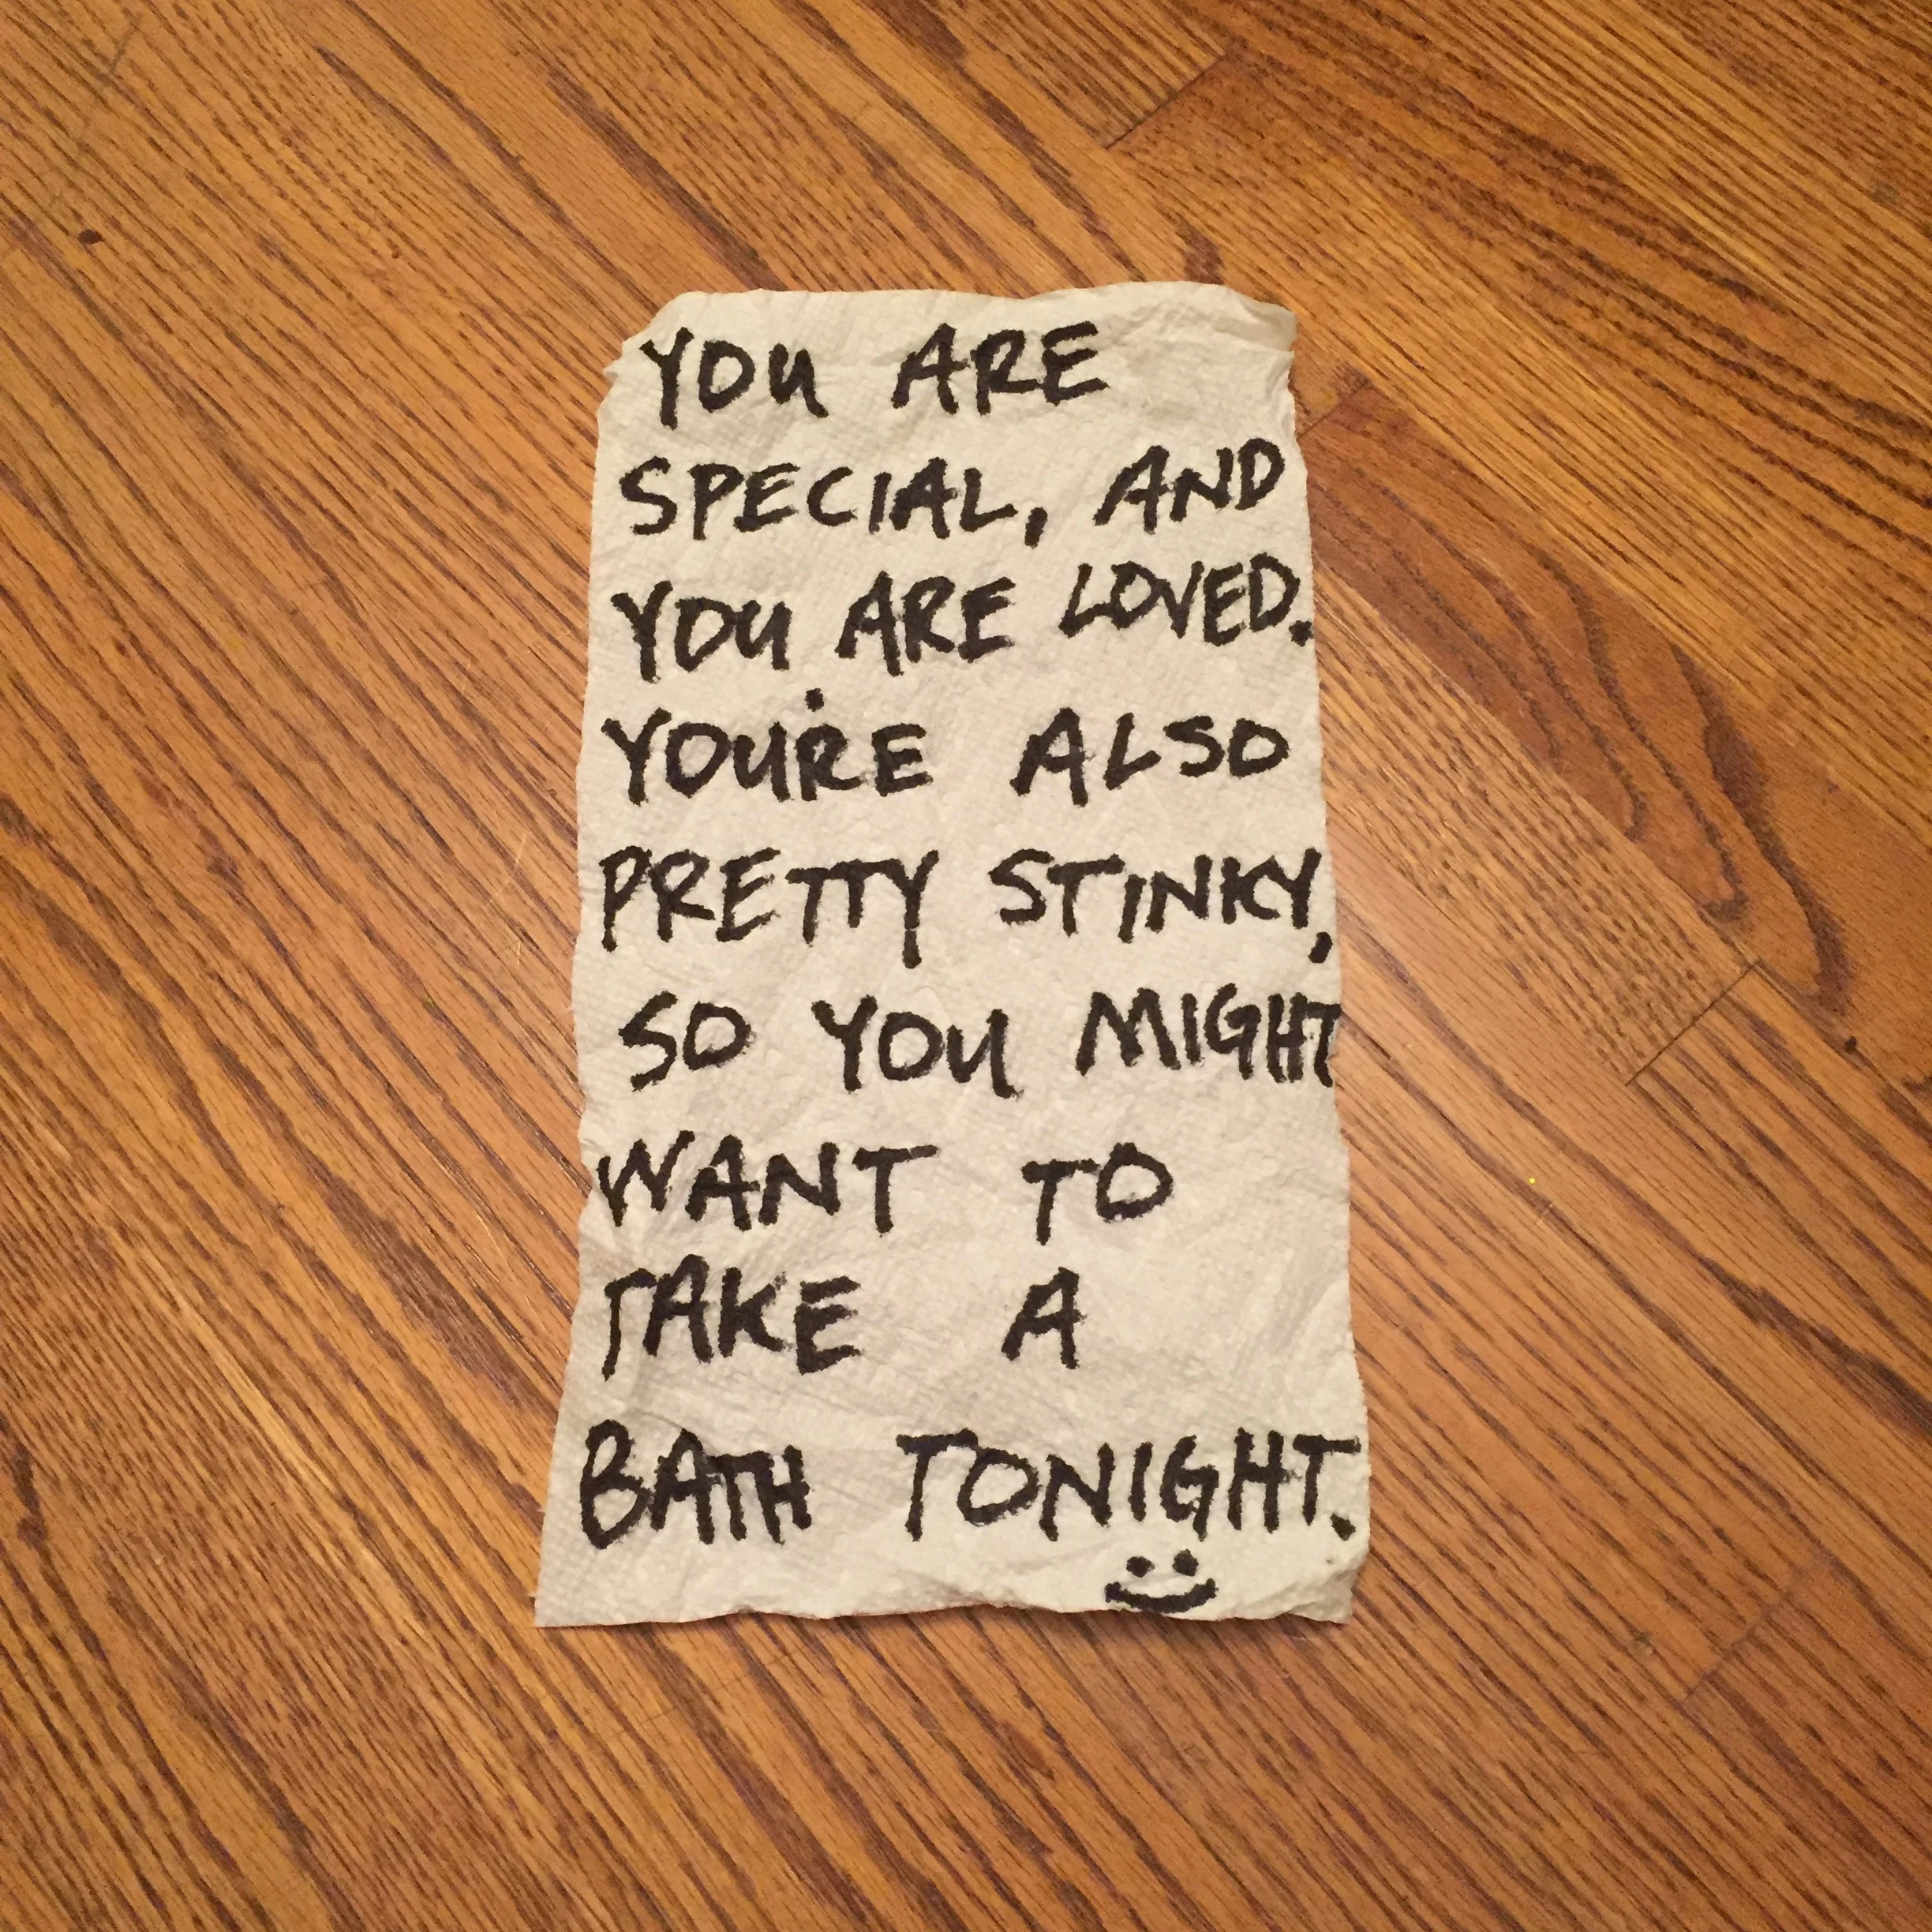 YOU ARE
SPECIAL, AND
YOU ARE LOVED.
YOU'RE ALSO
PRETTY STINKY,
SO YOU MIGHT
WANT TO
TAKE A
BATH TONIGHT.